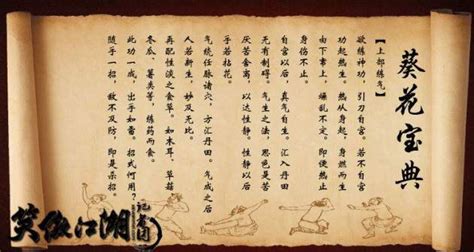 葵花宝典
【上部练气】
欲练神功，引刀自宫。若不自宫
功起热生。热从身起，身燃而生
由下窜上，燥乱不定。即便热止
身伤不止。
自宫以后，真气自生。汇入丹田
无有制碍。气生之法，思色是苦
厌苦舍离，以达性静。性静后气
乎若拈花。
气绕任脉诸穴，方汇丹田。气成之后
人妙善，妙及无比。
再配性淡之食草。如木耳、草菇
冬瓜、薯类等，练药而食。
此功一成，出手如雷。招式何用？
随手一招，敌不及防，即是杀招。
笑傲江湖